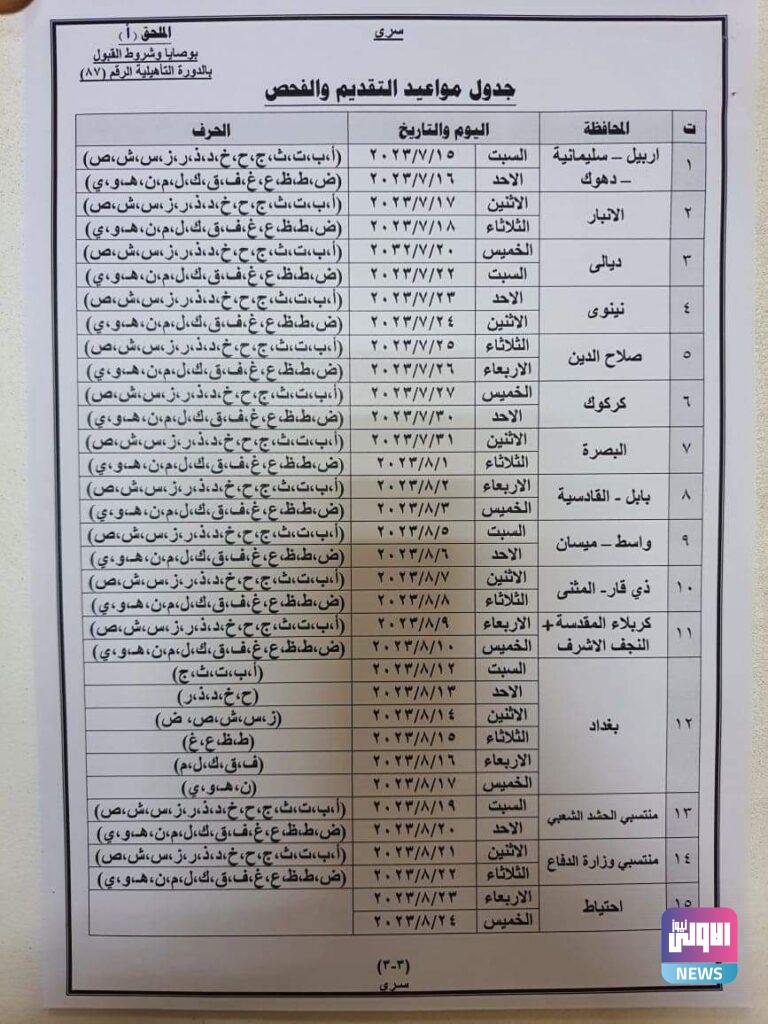 سري
الملحق (أ)
بوصايا وشروط القبول
بالدورة التأهيلية الرقم (٨٧)
جدول مواعيد التقديم والفحص
ت المحافظة اليوم والتاريخ الحرف
١ اربيل – سليمانية – دهوك السبت ٢٠٢٣/٧/١٥ (أ،ب،ت،ث،ج،ح،خ،د،ذ،ر،ز،س،ش،ص)
الاحد ٢٠٢٣/٧/١٦ (ض،ط،ظ،ع،غ،ف،ق،ك،ل،م،ن،هـ،و،ي)
٢ الانبار الاثنين ٢٠٢٣/٧/١٧ (أ،ب،ت،ث،ج،ح،خ،د،ذ،ر،ز،س،ش،ص)
الثلاثاء ٢٠٢٣/٧/١٨ (ض،ط،ظ،ع،غ،ف،ق،ك،ل،م،ن،هـ،و،ي)
٣ ديالى الخميس ٢٠٣٢/٧/٢٠ (أ،ب،ت،ث،ج،ح،خ،د،ذ،ر،ز،س،ش،ص)
السبت ٢٠٢٣/٧/٢٢ (ض،ط،ظ،ع،غ،ف،ق،ك،ل،م،ن،هـ،و،ي)
٤ نينوى الاحد ٢٠٢٣/٧/٢٣ (أ،ب،ت،ث،ج،ح،خ،د،ذ،ر،ز،س،ش،ص)
الاثنين ٢٠٢٣/٧/٢٤ (ض،ط،ظ،ع،غ،ف،ق،ك،ل،م،ن،هـ،و،ي)
٥ صلاح الدين الثلاثاء ٢٠٢٣/٧/٢٥ (أ،ب،ت،ث،ج،ح،خ،د،ذ،ر،ز،س،ش،ص)
الاربعاء ٢٠٢٣/٧/٢٦ (ض،ط،ظ،ع،غ،ف،ق،ك،ل،م،ن،هـ،و،ي)
٦ كركوك الخميس ٢٠٢٣/٧/٢٧ (أ،ب،ت،ث،ج،ح،خ،د،ذ،ر،ز،س،ش،ص)
الاحد ٢٠٢٣/٧/٣٠ (ض،ط،ظ،ع،غ،ف،ق،ك،ل،م،ن،هـ،و،ي)
٧ البصرة الاثنين ٢٠٢٣/٧/٣١ (أ،ب،ت،ث،ج،ح،خ،د،ذ،ر،ز،س،ش،ص)
الثلاثاء ٢٠٢٣/٨/١ (ض،ط،ظ،ع،غ،ف،ق،ك،ل،م،ن،هـ،و،ي)
٨ بابل - القادسية الاربعاء ٢٠٢٣/٨/٢ (أ،ب،ت،ث،ج،ح،خ،د،ذ،ر،ز،س،ش،ص)
الخميس ٢٠٢٣/٨/٣ (ض،ط،ظ،ع،غ،ف،ق،ك،ل،م،ن،هـ،و،ي)
٩ واسط – ميسان السبت ٢٠٢٣/٨/٥ (أ،ب،ت،ث،ج،ح،خ،د،ذ،ر،ز،س،ش،ص)
الاحد ٢٠٢٣/٨/٦ (ض،ط،ظ،ع،غ،ف،ق،ك،ل،م،ن،هـ،و،ي)
١٠ ذي قار- المثنى الاثنين ٢٠٢٣/٨/٧ (أ،ب،ت،ث،ج،ح،خ،د،ذ،ر،ز،س،ش،ص)
الثلاثاء ٢٠٢٣/٨/٨ (ض،ط،ظ،ع،غ،ف،ق،ك،ل،م،ن،هـ،و،ي)
١١ كربلاء المقدسة + النجف الاشرف الاربعاء ٢٠٢٣/٨/٩ (أ،ب،ت،ث،ج،ح،خ،د،ذ،ر،ز،س،ش،ص)
الخميس ٢٠٢٣/٨/١٠ (ض،ط،ظ،ع،غ،ف،ق،ك،ل،م،ن،هـ،و،ي)
١٢ بغداد السبت ٢٠٢٣/٨/١٢ (أ،ب،ت،ث،ج)
الاحد ٢٠٢٣/٨/١٣ (ح،خ،د،ذ،ر)
الاثنين ٢٠٢٣/٨/١٤ (ز،س،ش،ص، ض)
الثلاثاء ٢٠٢٣/٨/١٥ (ط،ظ،ع،غ)
الاربعاء ٢٠٢٣/٨/١٦ (ف،ق،ك،ل،م)
الخميس ٢٠٢٣/٨/١٧ (ن،هـ،و،ي)
١٣ منتسبي الحشد الشعبي السبت ٢٠٢٣/٨/١٩ (أ،ب،ت،ث،ج،ح،خ،د،ذ،ر،ز،س،ش،ص)
الاحد ٢٠٢٣/٨/٢٠ (ض،ط،ظ،ع،غ،ف،ق،ك،ل،م،ن،هـ،و،ي)
١٤ منتسبي وزارة الدفاع الاثنين ٢٠٢٣/٨/٢١ (أ،ب،ت،ث،ج،ح،خ،د،ذ،ر،ز،س،ش،ص)
الثلاثاء ٢٠٢٣/٨/٢٢ (ض،ط،ظ،ع،غ،ف،ق،ك،ل،م،ن،هـ،و،ي)
١٥ احتياط الاربعاء ٢٠٢٣/٨/٢٣
الخميس ٢٠٢٣/٨/٢٤
(٣-٣)
سري
الاولى نيوز
NEWS